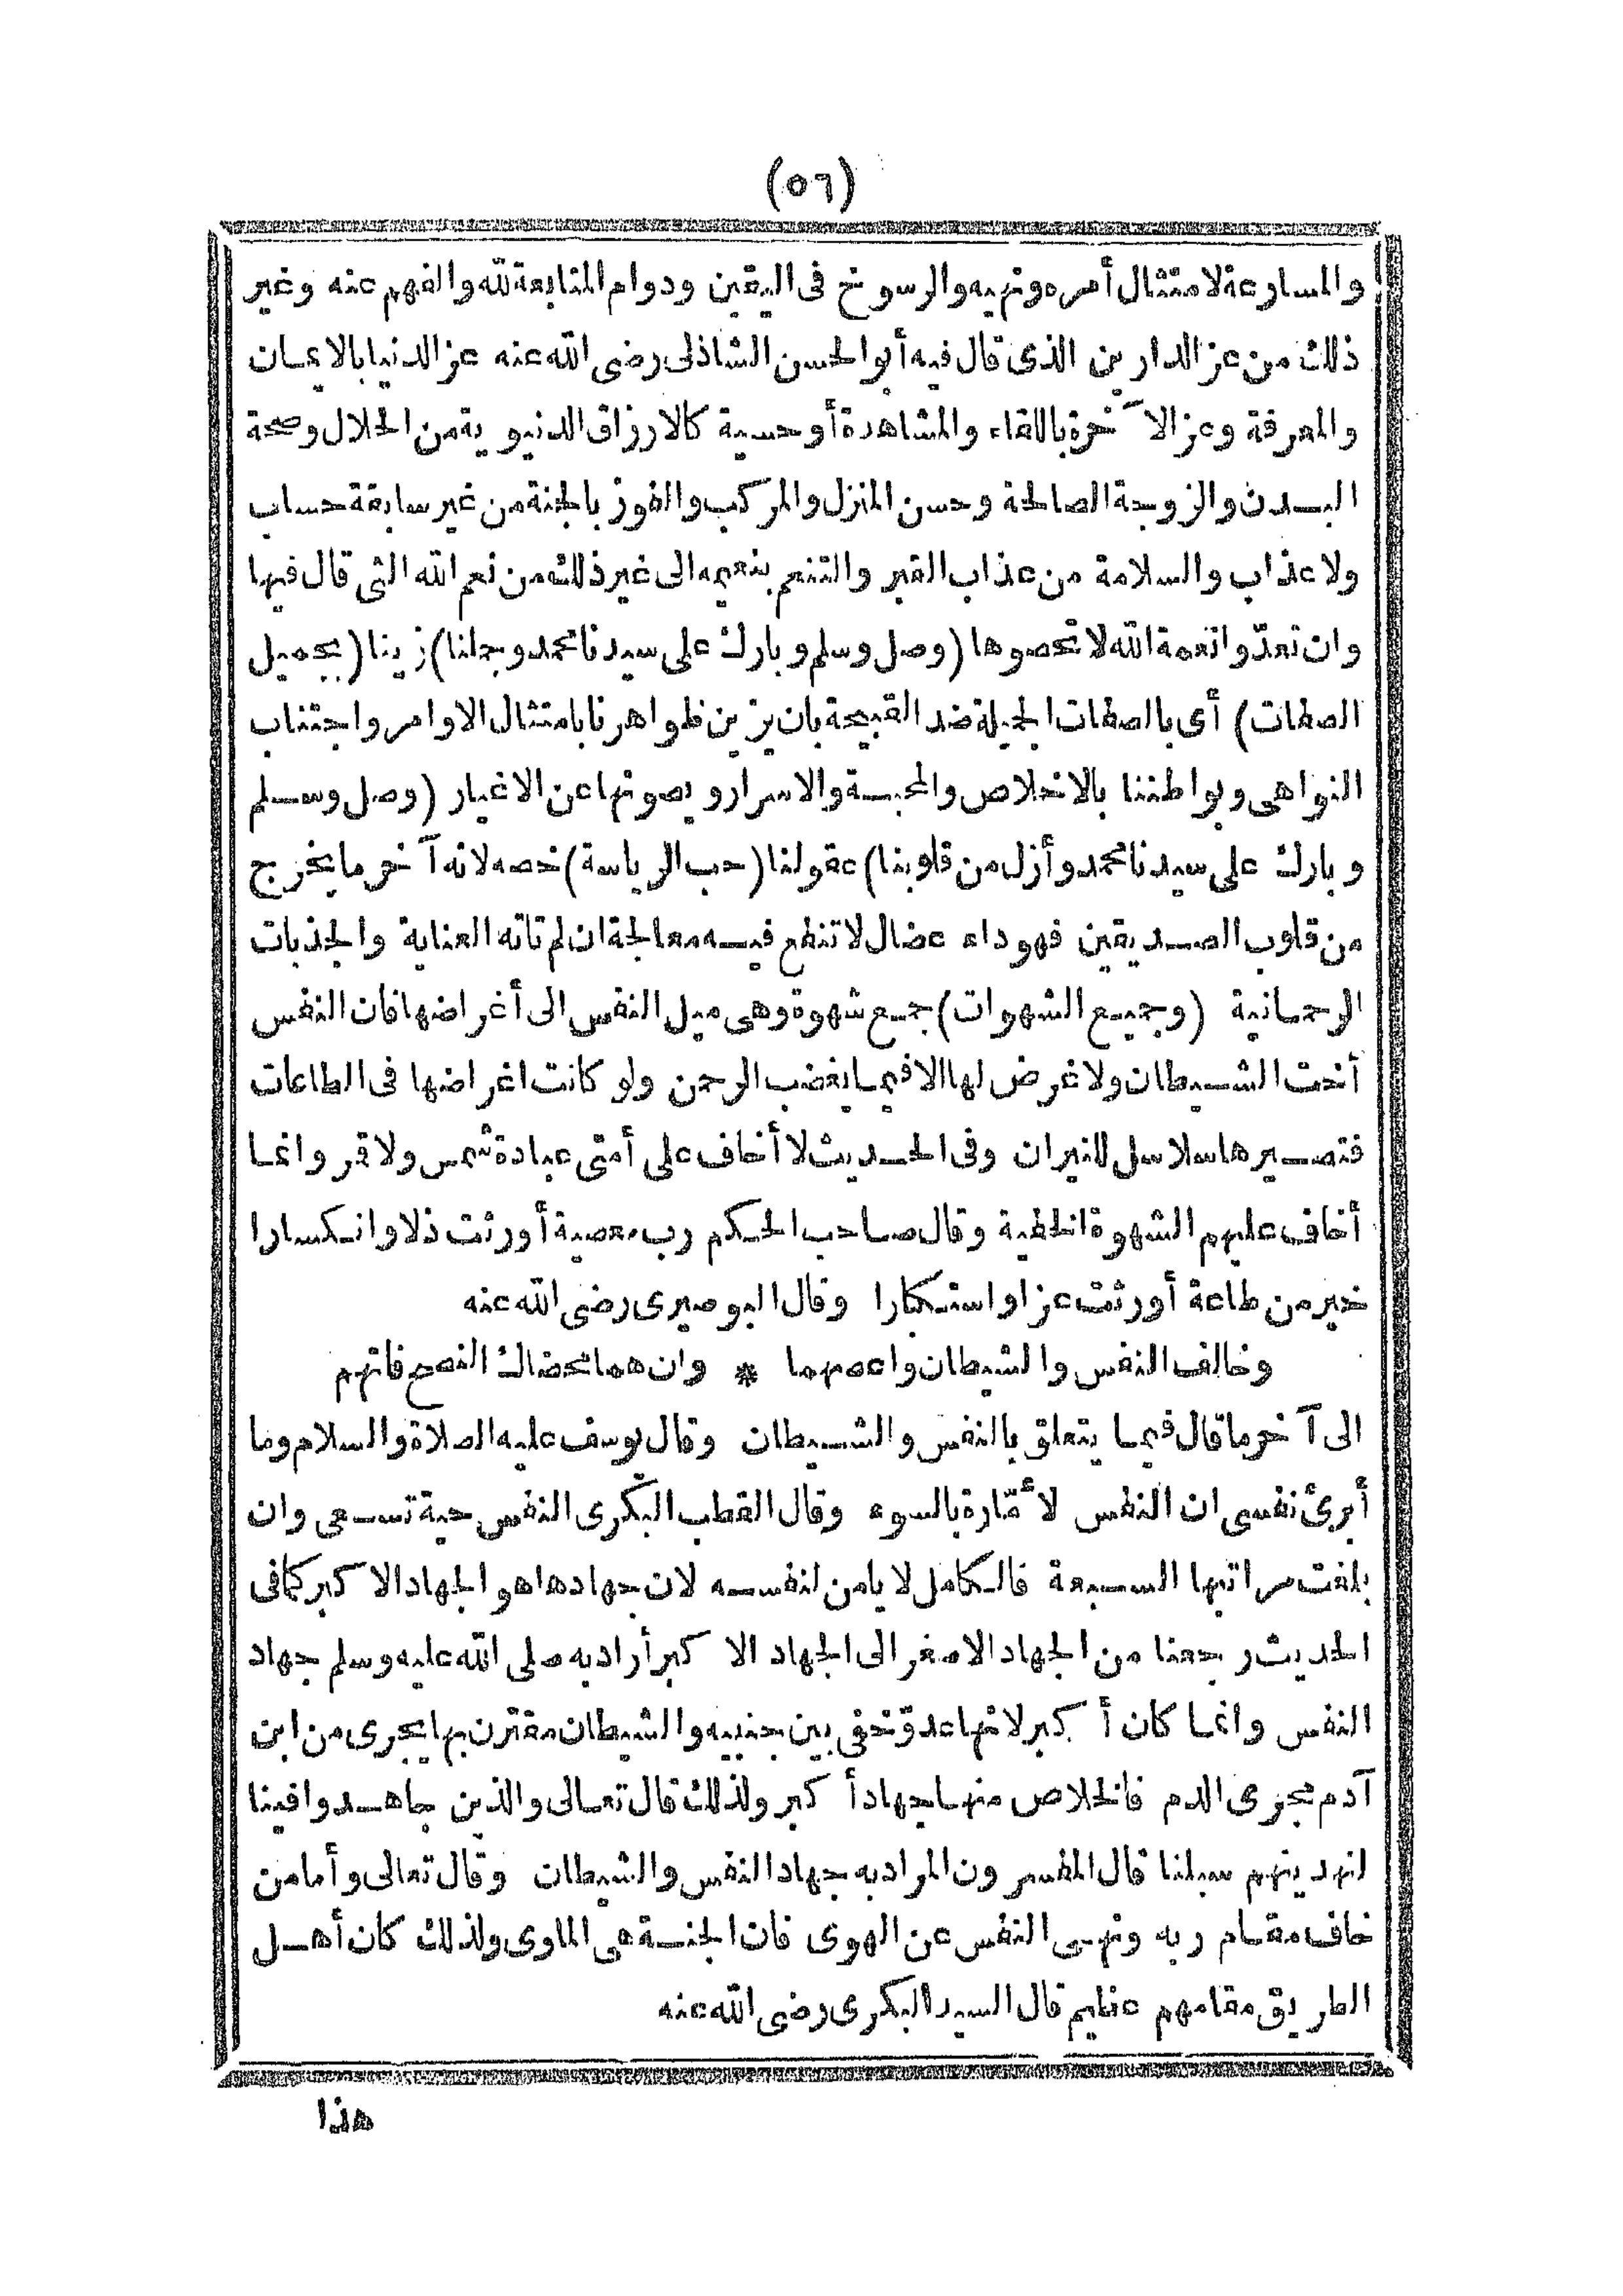 (٥٦)
والمسارعة لامتثال أمره ونهيه والرسوخ فى اليقين ودوام المتابعة لله والفهم عنه وغير
ذلك من عز الدارين الذى قال فيه أبو الحسن الشاذلى رضى الله عنه عز الدنيا بالايمان
والمعرفة وعز الآخرة باللقاء والمشاهدة أو حسية كالارزاق الدنيوية من الحلال وصحة
البدن والزوجة الصالحة وحسن المنزل والمركب والفوز بالجنة من غير سابقة حساب
ولا عذاب والسلامة من عذاب القبر والتنعم بنعيمه الى غير ذلك من نعم الله التى قال فيها
وان تعدّوا نعمة الله لا تحصوها (وصل وسلم وبارك على سيدنا محمد وجملنا) زينا (بجميل
الصفات) أى بالصفات الجميلة ضد القبيحة بان يزين ظواهرنا بامتثال الاوامر واجتناب
النواهى وبواطننا بالاخلاص والمحبة والاسرار ويصونها عن الاغيار (وصل وسلم
وبارك على سيدنا محمد وأزل من قلوبنا) عقولنا (حب الرياسة) خصه لانه آخر ما يخرج
من قلوب الصديقين فهو داء عضال لا تنفع فيه معالجة ان لم تاته العناية والجذبات
الرحمانية (وجميع الشهوات) جمع شهوة وهى ميل النفس الى أغراضها فان النفس
أخت الشيطان ولا غرض لها الا فيما يغضب الرحمن ولو كانت اغراضها فى الطاعات
فتصيرها سلاسل للنيران وفى الحديث لا أخاف على أمتى عبادة شمس ولا قمر وانما
أخاف عليهم الشهوة الخفية وقال صاحب الحكم رب معصية أورثت ذلا وانكسارا
خير من طاعة أورثت عزا واستكبارا وقال البوصيرى رضى الله عنه
وخالف النفس والشيطان واعصهما * وان هما محضاك النصح فاتهم
الى آخر ما قال فيما يتعلق بالنفس والشيطان وقال يوسف عليه الصلاة والسلام وما
أبرئ نفسى ان النفس لأمّارة بالسوء وقال القطب البكرى النفس حية تسعى وان
بلغت مراتبها السبعة فالكامل لا يامن لنفسه لان جهادها هو الجهاد الاكبر كما فى
الحديث رجعنا من الجهاد الاصغر الى الجهاد الاكبر أراد به صلى الله عليه وسلم جهاد
النفس وانما كان أكبر لانها عدوّ خفى بين جنبيه والشيطان مقترن بها يجرى من ابن
آدم مجرى الدم فالخلاص منها جهاد أكبر ولذلك قال تعالى والذين جاهدوا فينا
لنهدينهم سبلنا قال المفسرون المراد به جهاد النفس والشيطان وقال تعالى وأما من
خاف مقام ربه ونهى النفس عن الهوى فان الجنة هى الماوى ولذلك كان أهل
الطريق مقامهم عظيم قال السيد البكرى رضى الله عنه
هذا